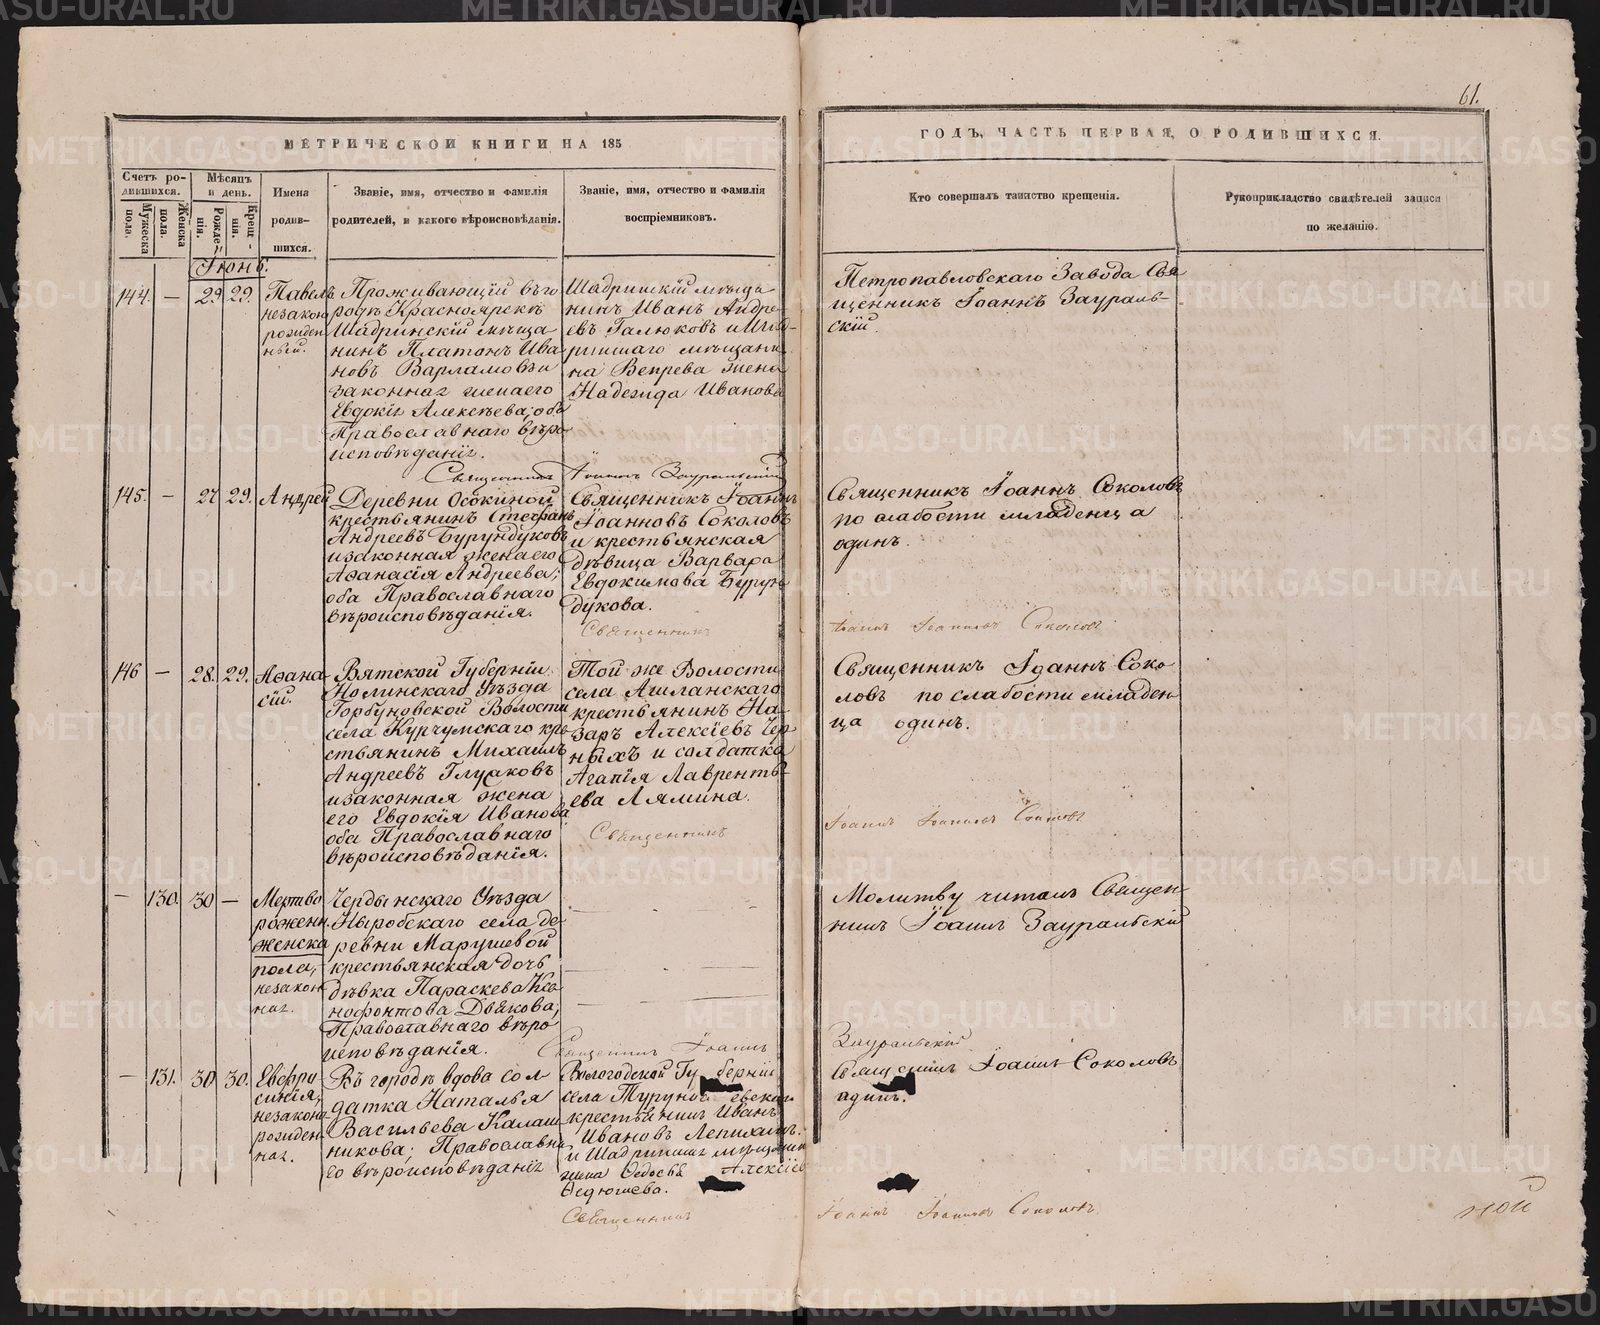 61.
МЕТРИЧЕСКОЙ КНИГИ НА 185
ГОДЪ, ЧАСТЬ ПЕРВАЯ, О РОДИВШИХСЯ.
Счетъ ро-
дившихся.
Мужеска
пола.
Женска
пола.
Мѣсяцъ
и день.
Рожде-
нія.
Крещ-
нія.
Имена
родив-
шихся.
Званіе, имя, отчество и фамилія
родителей, и какого вѣроисповѣданія.
Званіе, имя, отчество и фамилія
воспріемниковъ.
Кто совершалъ таинство крещенія.
Рукоприкладство свидѣтелей записи
по желанію.
Іюнь.
144. — 29. 29.
Павелъ
незакон
рожден
ный.
Проживающій въ го
родѣ Красноярскѣ
Шадринскій мѣща
нинъ Платонъ Ива
новъ Варламовъ и
законная жена его
Евдокія Алексѣева; оба
Православнаго вѣро
исповѣданія.
Шадринскій мѣща
нинъ Иванъ Андре
евъ Галюковъ и Шад-
ринскаго мѣщани
на Вепрева жена
Надежда Иванова
Петропавловскаго Завода Свя
щенникъ Іоаннъ Заураль-
скій.
Священникъ Іоаннъ Зауральскій
145. — 27 29.
Андрей
Деревни Осокиной
крестьянинъ Стефанъ
Андреевъ Бурундуковъ
и законная жена его
Аѳанасія Андреева;
оба Православнаго
вѣроисповѣданія.
Священникъ Іоаннъ
Іоанновъ Соколовъ
и крестьянская
дѣвица Варвара
Евдокимова Бурун
дукова.
Священникъ Іоаннъ Соколовъ
по слабости младенца
одинъ.
Священникъ Іоаннъ Іоанновъ Соколовъ
146 — 28. 29.
Аѳана
сій.
Вятской Губерніи
Нолинскаго Уѣзда
Горбуновской Волости
села Курчумскаго кре
стьянинъ Михаилъ
Андреевъ Глушковъ
и законная жена
его Евдокія Иванова
оба Православнаго
вѣроисповѣданія.
Той же Волости
села Ашланскаго
крестьянинъ На
заръ Алексіевъ Чер
ныхъ и солдатка
Агапія Лавренть
ева Лямина.
Священникъ Іоаннъ Соко
ловъ по слабости младен
ца одинъ.
Священникъ Іоаннъ Іоанновъ Соколовъ
— 130. 30 —
Мертво
рожен.
женска
пола,
незакон
ная.
Чердынскаго Уѣзда
Ныробскаго села де
ревни Марушевой
крестьянская дочь
дѣвка Параскева Ксе
нофонтова Двякова;
Православнаго вѣро
исповѣданія.
Молитву читалъ Священ
никъ Іоаннъ Зауральскій
Священникъ Іоаннъ Зауральскій
— 131. 30 30.
Евфро
синія,
незакон
рожден
ная.
Въ городѣ вдова сол
датка Наталья
Васильева Калаш
никова; Православна
го вѣроисповѣданія
Вологодской Губерніи
села
крестьянинъ Иванъ
Ивановъ Лепихинъ.
и Шадринск мѣщанина
жена Ѳедосья Алексіев
Ѳедюшева.
Священникъ Іоаннъ Соколовъ
одинъ.
Священникъ Іоаннъ Іоанновъ Соколовъ
ной
METRIKI.GASO-URAL.RU